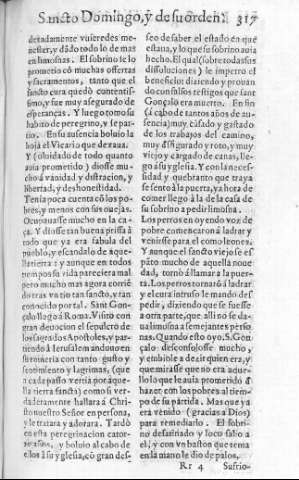 Sancto Domingo, y de su orden. 317
deradamente vuieredes me-
nester, y dádo todo lo de mas
en limosnas. El sobrino se lo
prometio cõ muchas offertas
y sacramentos, tanto que el
sancto cura quedò contentis-
simo, y fue muy asegurado de
esperanças. Y luego tomo su
habito de peregrino, y se par-
tio. En su ausencia boluio la
hoja el Vicario que dexaua.
Y (oluidado de todo quanto
auia prometido) diose mu-
cho à vanidad y distracion, y
libertad, y deshonestidad.
Tenia poca cuenta cõ los po-
bres, y menos con sus ouejas.
Ocupauase mucho en la ca-
ça. Y diose tan buena prissa à
todo que ya era fabula del
pueblo, y escandalo de aque-
lla tierra: y aunque en todos
tiempos su vida pareciera mal
pero mucho mas agora corriè
do tras vn tan sancto, y ran
conocido por tal. Sant Gon-
çalo llegò à Roma. Visitò con
gran deuocion el sepulcro de
los sagrados Apostoles, y par-
tiendo à Ierusalem anduuo en
su romeria con tanto gusto y
sentimiento y lagrimas, (que
a cada passo vertia por aque-
lla tierra sancta) como si ver-
daderamente hallara à Chri-
sto nuestro Señor en persona,
y le tratara y adorara. Tardò
en esta peregrinacion cator-
ze años, y boluio al cabo de
ellos à su yglesia, cõ gran des-
seo de saber el estado en que
estaua, y lo que se sobrino auia
hecho. El qual (sobre todas sus
dissoluciones) le impetro el
beneficio diziendo y prouan
do con testigos falsos que sant
Gonçalo era muerto. En fin
(à cabo de tantos años de au-
sencia) muy cãsado y gastado
de los trabajos del camino,
muy disfigurado y roto, y muy
viejo y cargado de canas, lle-
gò à su yglesia. Y con la neces-
sidad y quebranto que traya
se sentò à la puerta, ya hora de
comer llego à la de la casa de
su sobrino a pedir limosna.
Los perros en oyendo voz de
pobre comencaron à ladrar
y venirse para el como leones.
Y aunque el sancto viejo se es
pãto mucho de aquella noue
dad, tornò à llamar a la puer-
ta. Los perros tornarõ à ladrar
y el cura intruso le mandò des
pedir, diziendo que se fuesse
a otra parte, que alli no se da-
ua limosna a semejantes perso
nas. Quando esto oyo S. Gon-
çalo desconsolose mucho,
y embible a dezir quien era, y
que mirasse que no era aque-
llo lo que le auia prometido à
hazer con los pobres al tiem-
po de su partida. Mas que ya
era venido (gracias a Dios)
para remediarlo. El sobri-
no desatinado y loco salio a
el, y con vn baston que tenia
en la mano le dio de palos.
Rr 4 Sufrio-